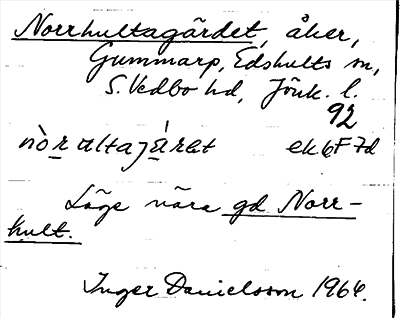 Norrhultagärdet, åker,
Gummarp, Edshults sn,
S. Vedbo hd, Jönk. l.
92
nòr ultajáret ek 6F 7d
Läge nära gd Norr-
hult.
Inger Danielsson 1964.